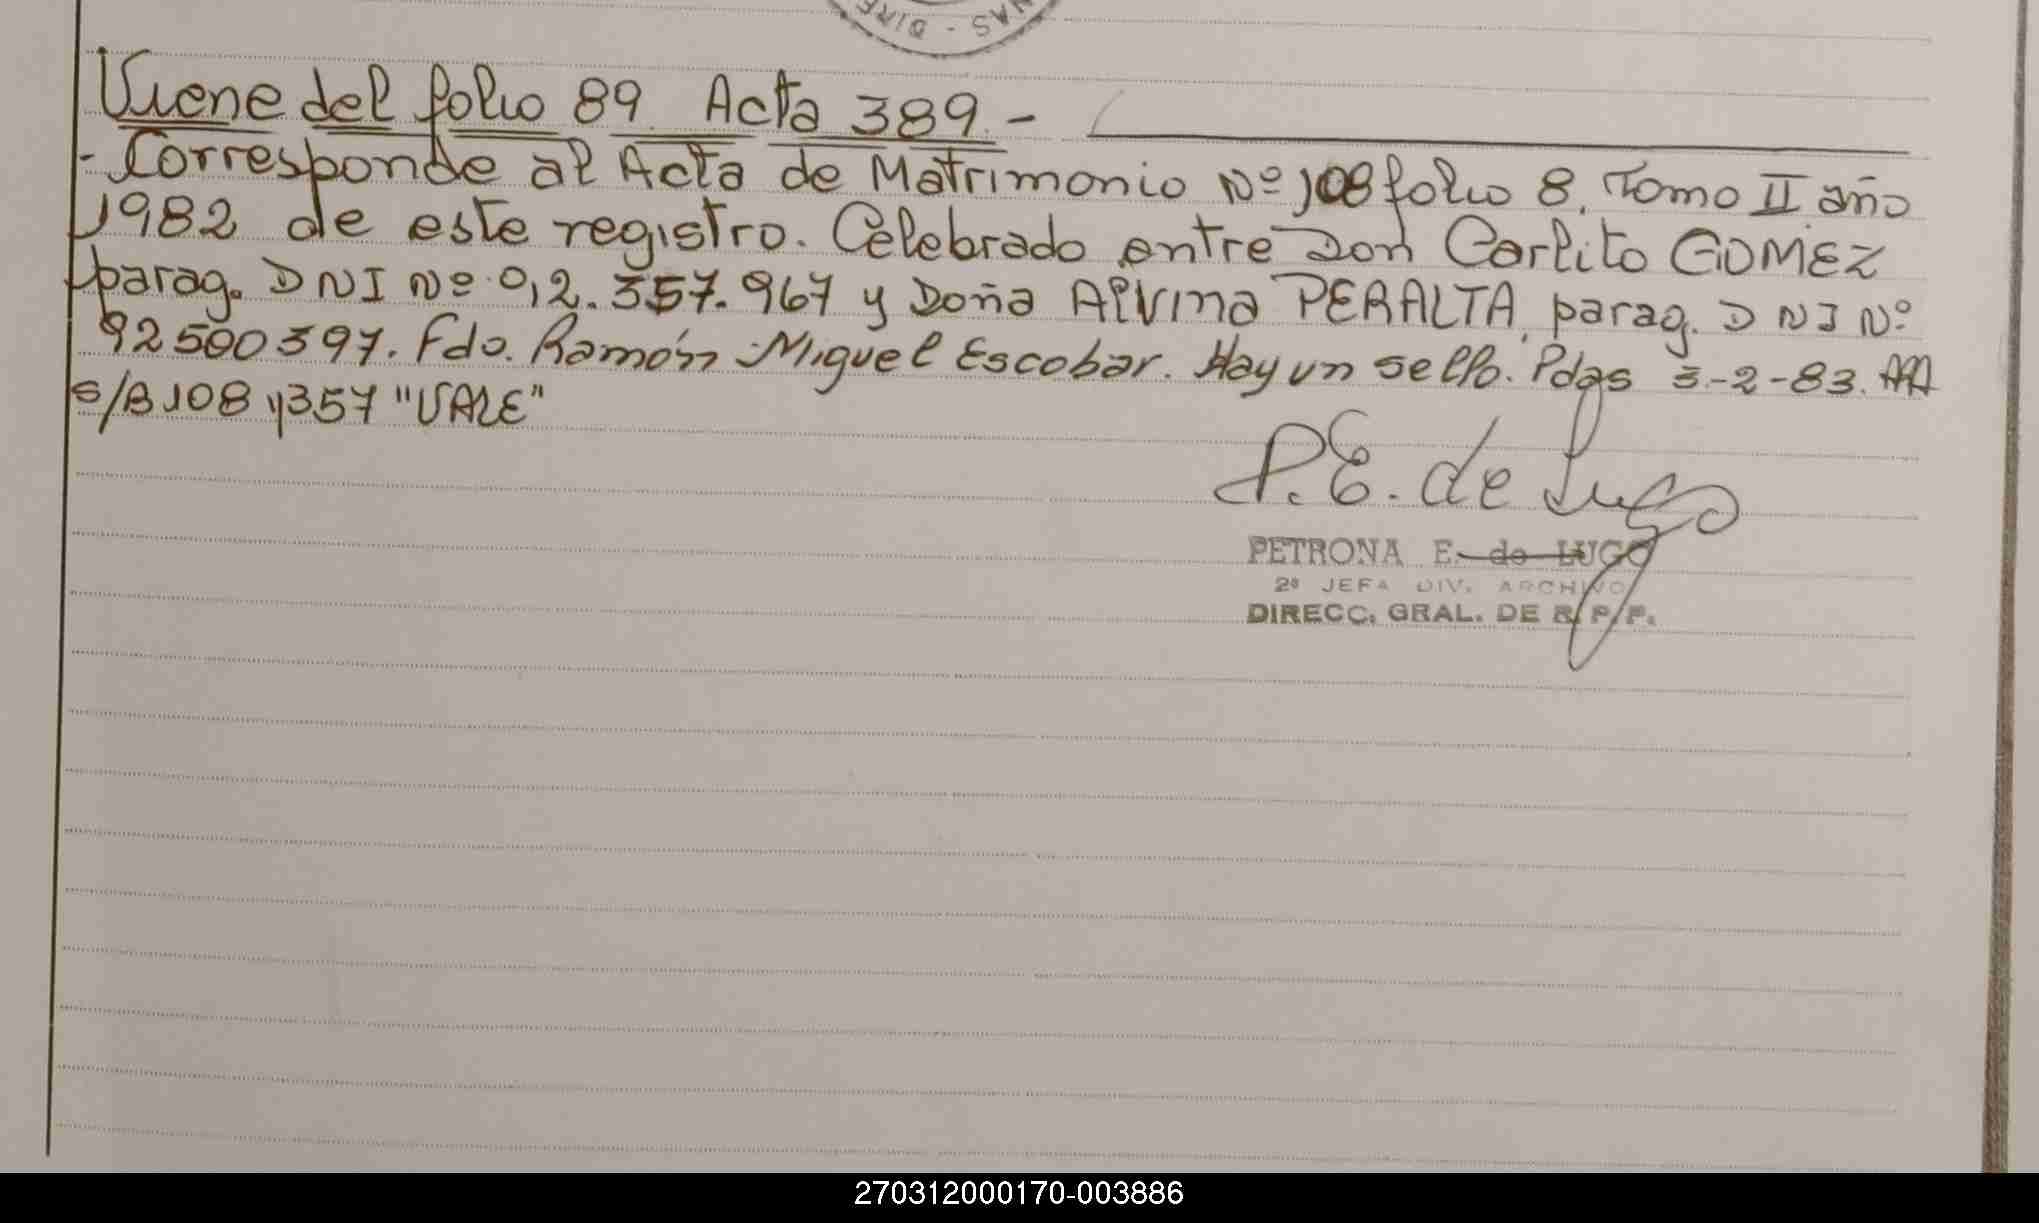 NAS - DIRE
Viene del folio 89 Acta 389.-
- Corresponde al Acta de Matrimonio Nº 108 folio 8. Tomo II año
1982 de este registro. Celebrado entre Don Carlito GOMEZ
parag. DNI Nº 92.357.967 y Doña Alvina PERALTA, parag. DNI Nº
92500397. Fdo. Ramón Miguel Escobar. Hay un sello. Pdas 3-2-83. AA
s/B 108 y 357 "VALE"
P.E. de Lugo
PETRONA E. de LUGO
2º JEFA DIV. ARCHIVO
DIRECC. GRAL. DE R.P.P.
270312000170-003886